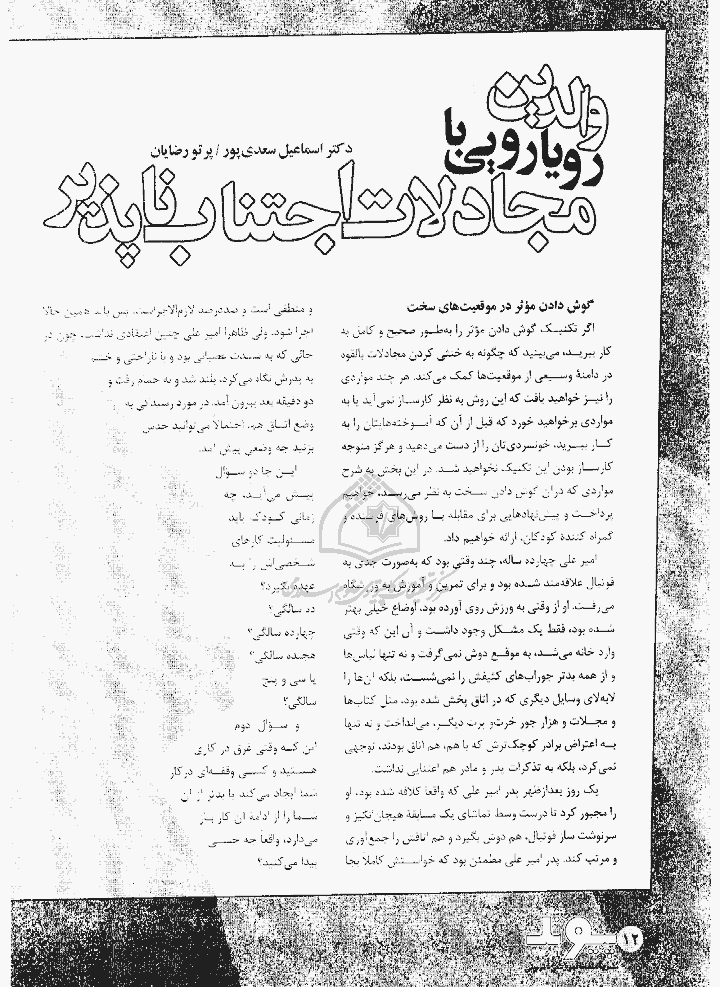 والدین
رویارویی با
مجادلات اجتناب ناپذیر
دکتر اسماعیل سعدی‌پور / پرتو رضایان
گوش دادن مؤثر در موقعیت‌های سخت
اگر تکنیک گوش دادن مؤثر را به‌طور صحیح و کامل به
کار ببرید، می‌بینید که چگونه به خنثی کردن مجادلات بالقوه
در دامنهٔ وسیعی از موقعیت‌ها کمک می‌کند. هر چند مواردی
را نیز خواهید یافت که این روش به نظر کارساز نمی‌آید یا به
مواردی برخواهید خورد که قبل از آن که آموخته‌هایتان را به
کار ببرید، خونسردی‌تان را از دست می‌دهید و هرگز متوجه
کارساز بودن این تکنیک نخواهید شد. در این بخش به شرح
مواردی که در آن گوش دادن سخت به نظر می‌رسد، خواهیم
پرداخت و پیش‌نهادهایی برای مقابله با روش‌های فریبنده و
گمراه کنندهٔ کودکان، ارائه خواهیم داد.
امیر علی چهارده ساله، چند وقتی بود که به‌صورت جدی به
فوتبال علاقه‌مند شده بود و برای تمرین و آموزش به ورزشگاه
می‌رفت. او از وقتی به ورزش روی آورده بود، اوضاع خیلی بهتر
شده بود، فقط یک مشکل وجود داشت و آن این که وقتی
وارد خانه می‌شد، به موقع دوش نمی‌گرفت و نه تنها لباس‌ها
و از همه بدتر جوراب‌های کثیفش را نمی‌شست، بلکه آن‌ها را
لابه‌لای وسایل دیگری که در اتاق پخش شده بود، مثل کتاب‌ها
و مجلات و هزار جور خرت و پرت دیگر، می‌انداخت و نه تنها
به اعتراض برادر کوچک‌ترش که با هم، هم اتاق بودند، توجهی
نمی‌کرد، بلکه به تذکرات پدر و مادر هم اعتنایی نداشت.
یک روز بعدازظهر پدر امیر علی که واقعا کلافه شده بود، او
را مجبور کرد تا درست وسط تماشای یک مسابقهٔ هیجان‌انگیز و
سرنوشت ساز فوتبال، هم دوش بگیرد و هم اتاقش را جمع‌آوری
و مرتب کند. پدر امیر علی مطمئن بود که خواستش کاملا بجا
و منطقی است و صددرصد لازم‌الاجراست، پس باید همین حالا
اجرا شود. ولی ظاهرا امیر علی چنین اعتقادی نداشت، چون در
حالی که به شدت عصبانی بود و با ناراحتی و خشم
به پدرش نگاه می‌کرد، بلند شد و به حمام رفت و
دو دقیقه بعد بیرون آمد. در مورد رسیدگی به
وضع اتاق هم، احتمالا می‌توانید حدس
بزنید چه وضعی پیش آمد.
این جا دو سؤال
پیش می‌آید، چه
زمانی کودک باید
مسئولیت کارهای
شخصی‌اش را به
عهده بگیرد؟
ده سالگی؟
چهارده سالگی؟
هجده سالگی؟
یا سی و پنج
سالگی؟
و سؤال دوم
این که وقتی غرق در کاری
هستید و کسی وقفه‌ای در کار
شما ایجاد می‌کند یا بدتر از آن
شما را از ادامه آن کار باز
می‌دارد، واقعا چه حسی
پیدا می‌کنید؟
۱۲